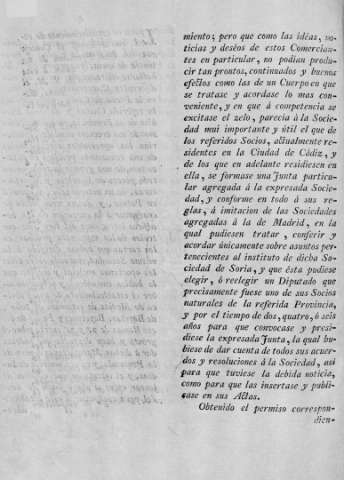 miento; pero que como las idéas, no-
ticias y deséos de estos Comercian-
tes en particular, no podian produ-
cir tan prontos, continuados y buenos
efectos como las de un Cuerpo en que
se tratase y acordase lo mas con-
veniente, y en que á competencia se
excitase el zelo, parecia á la Socie-
dad mui importante y útil el que de
los referidos Socios, actualmente re-
sidentes en la Ciudad de Cádiz, y
de los que en adelante residiesen en
ella, se formase una Junta particu-
lar agregada á la expresada Socie-
dad, y conforme en todo á sus re-
glas, á imitacion de las Sociedades
agregadas á la de Madrid, en la
qual pudiesen tratar, conferir y
acordar únicamente sobre asuntos per-
tenecientes al instituto de dicha So-
ciedad de Soria, y que ésta pudiese
elegir, ó reelegir un Diputado que
precisamente fuese uno de sus Socios
naturales de la referida Provincia,
y por el tiempo de dos, quatro, ó seis
años para que convocase y presi-
diese la expresada Junta, la qual hu-
biese de dar cuenta de todos sus acuer-
dos y resoluciones á la Sociedad, asi
para que tuviese la debida noticia,
como para que las insertase y publi-
case en sus Actas.
Obtenido el permiso correspon-
dien-